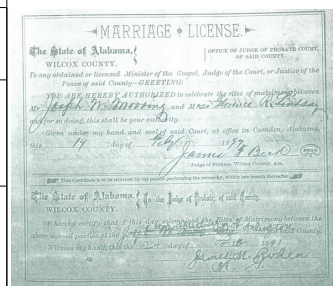 MARRIAGE LICENSE.
The State of Alabama,
WILCOX COUNTY.
OFFICE OF JUDGE OF PROBATE COURT,
OF SAID COUNTY.
To any ordained or licensed Minister of the Gospel, Judge of the Court, or Justice of the
Peace of said County—GREETING:
YOU ARE HEREBY AUTHORIZED to celebrate the rites of matrimony between
Mr. Joseph W. and Florence Lindsay
and for so doing, this shall be your authority.
Given under my hand and seal of said Court, at office in Camden, Alabama,
this 19 day of Feby. 189
James
Judge of Probate, Wilcox County, Ala.
SEAL
This Certificate is to be returned by the person performing the ceremony, within one month thereafter.
The State of Alabama,
WILCOX COUNTY.
To the Judge of Probate, of said County.
I hereby certify that I this day solemnized the Rites of Matrimony between the
above named parties at the in said County.
Witness my hand this the 24 day of Feb 1891
James M. Boden